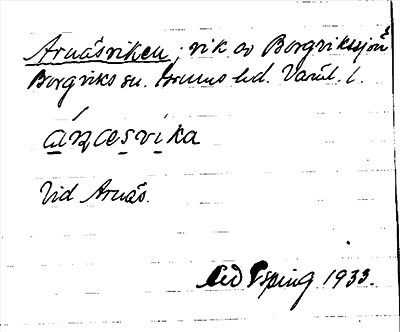 Arnäsviken, vik av Borgvikssjön
Borgviks sn. Grums hd. Värml. l.
áɳæsvika
Vid Arnäs.
1933.